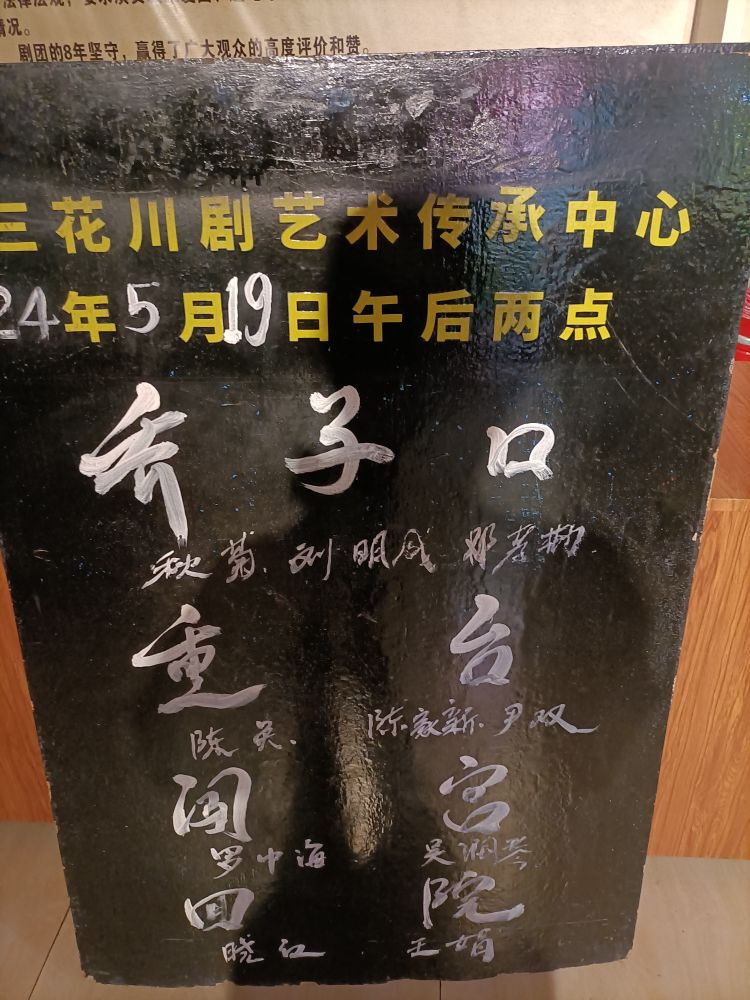 情况。
剧团的8年坚守，赢得了广大观众的高度评价和赞。
三花川剧艺术传承中心
24年5月19日午后两点
乔子口
秋菊 刘明成
重台
陈英 陈家新 尹双
闯宫
罗中海 吴润琴
回院
晓红 王娟